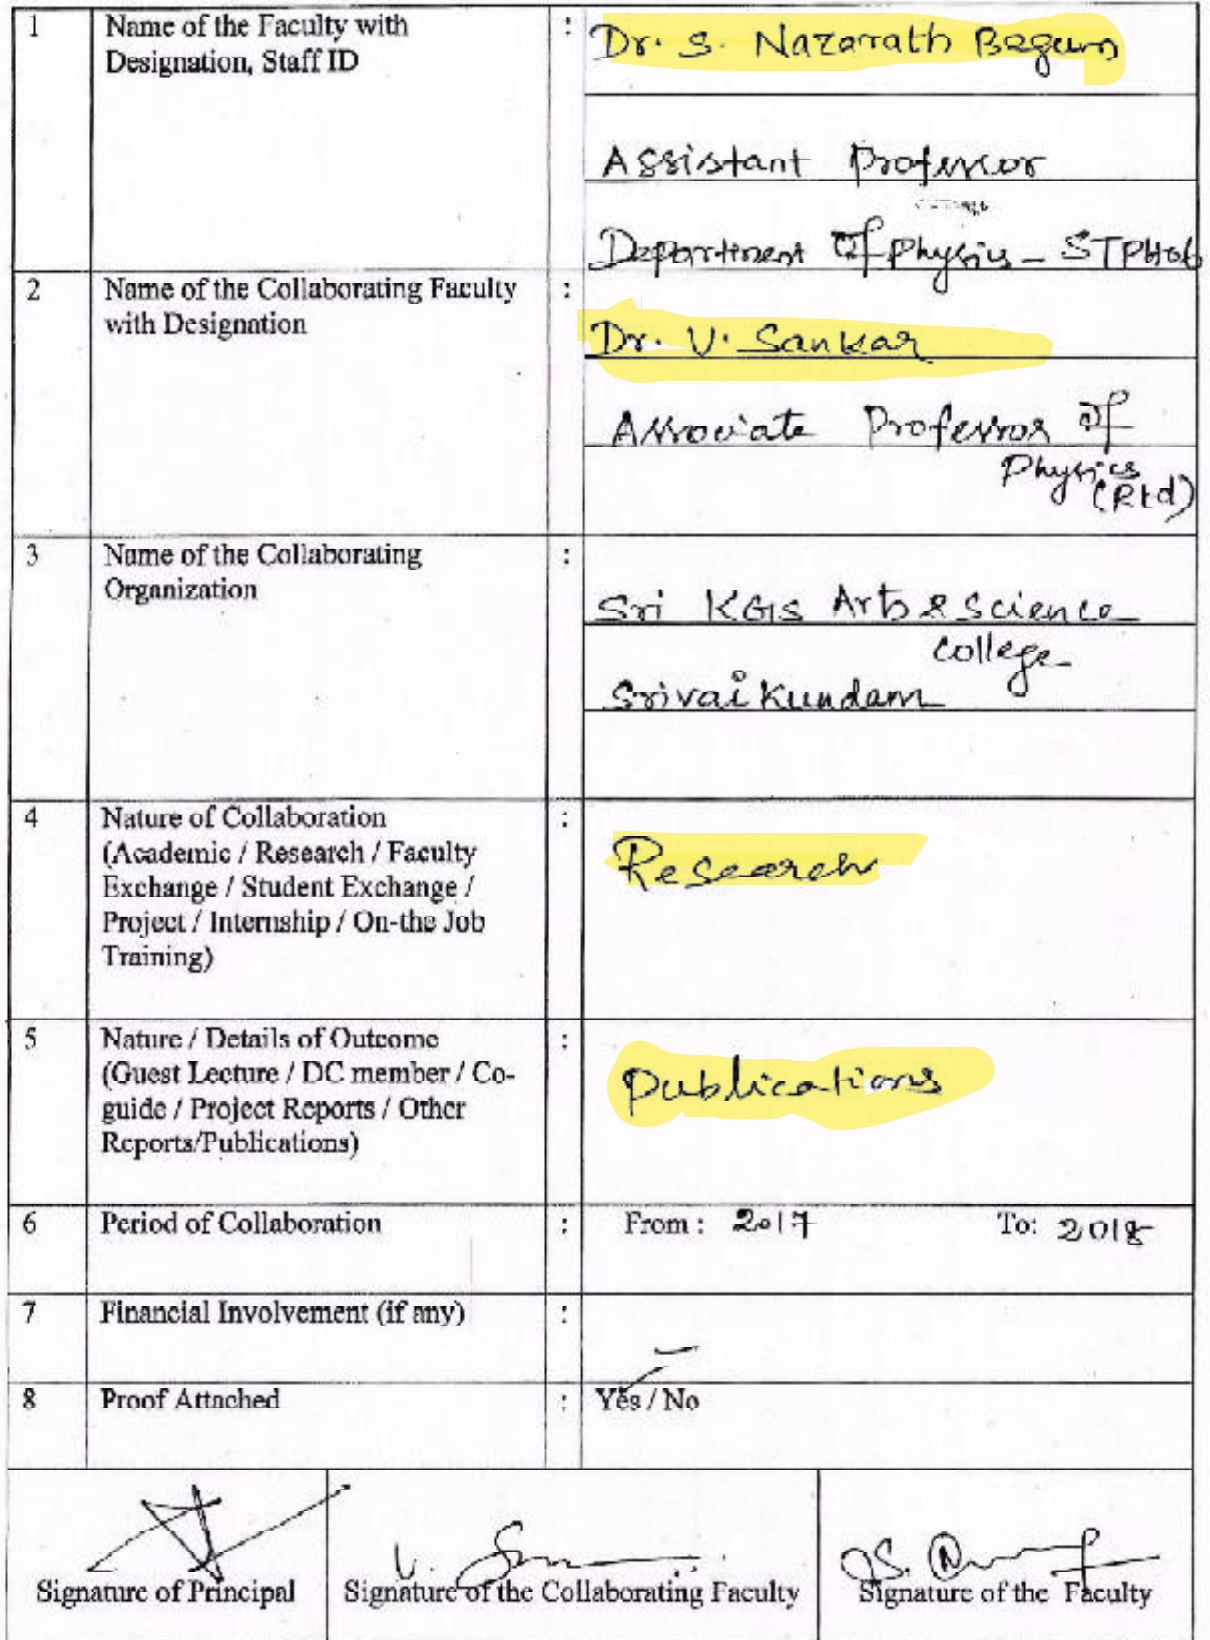 1 Name of the Faculty with : Dr. S. Nazarath Begum
Designation, Staff ID
Assistant Professor
Department Of Physics - STPH06
2 Name of the Collaborating Faculty :
with Designation Dr. V. Sankar
Associate Professor of
Physics
(Rtd)
3 Name of the Collaborating :
Organization Sri KGS Arts & Science
College
Srivaikundam
4 Nature of Collaboration :
(Academic / Research / Faculty Research
Exchange / Student Exchange /
Project / Internship / On-the Job
Training)
5 Nature / Details of Outcome :
(Guest Lecture / DC member / Co- Publications
guide / Project Reports / Other
Reports/Publications)
6 Period of Collaboration : From : 2017 To: 2018
7 Financial Involvement (if any) : -
8 Proof Attached : Yes / No
V.
Signature of Principal Signature of the Collaborating Faculty Signature of the Faculty